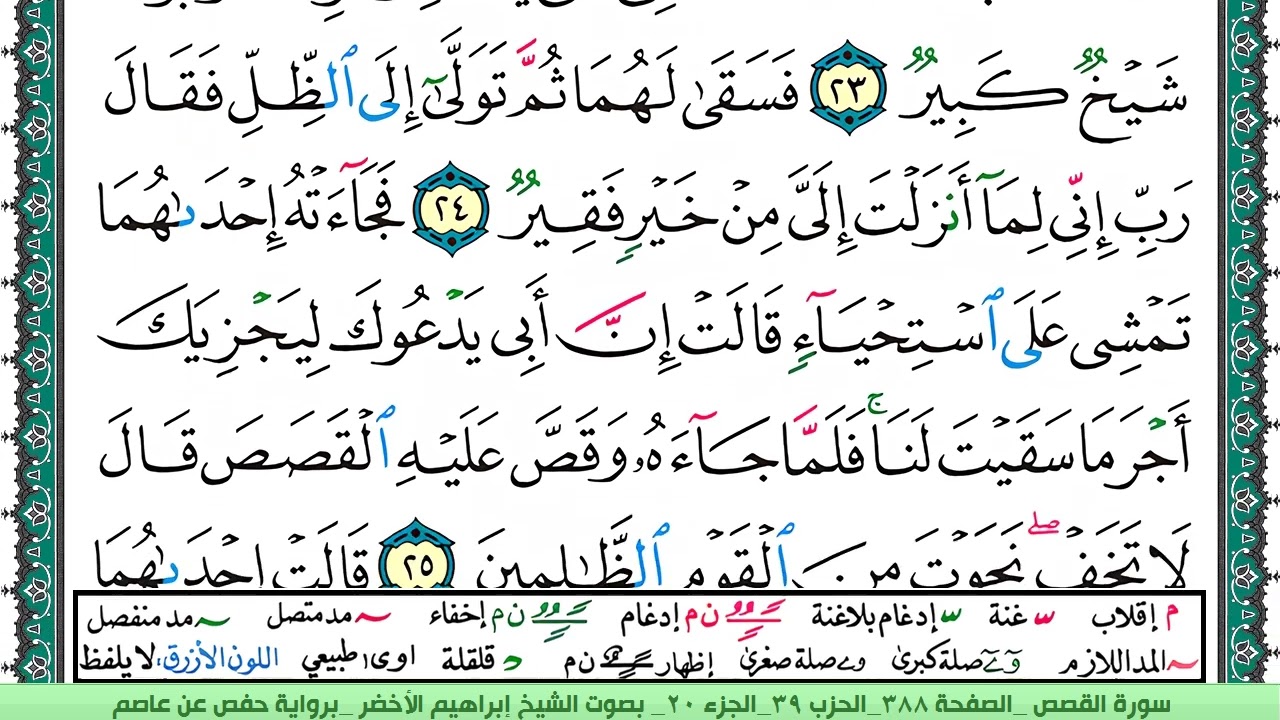 شَيۡخٞ كَبِيرٞ ٢٣ فَسَقَىٰ لَهُمَا ثُمَّ تَوَلَّىٰٓ إِلَى ٱلظِّلِّ فَقَالَ
رَبِّ إِنِّي لِمَآ أَنزَلۡتَ إِلَيَّ مِنۡ خَيۡرٖ فَقِيرٞ ٢٤ فَجَآءَتۡهُ إِحۡدَىٰهُمَا
تَمۡشِي عَلَى ٱسۡتِحۡيَآءٖ قَالَتۡ إِنَّ أَبِي يَدۡعُوكَ لِيَجۡزِيَكَ
أَجۡرَ مَا سَقَيۡتَ لَنَاۚ فَلَمَّا جَآءَهُۥ وَقَصَّ عَلَيۡهِ ٱلۡقَصَصَ قَالَ
لَا تَخَفۡۖ نَجَوۡتَ مِنَ ٱلۡقَوۡمِ ٱلظَّٰلِمِينَ ٢٥ قَالَتۡ إِحۡدَىٰهُمَا
م إقلاب س غنة س إدغام بلاغنة ن م إدغام ن م إخفاء مد متصل مد منفصل
المد اللازم صلة كبرى صلة صغرى إظهار ن م قلقلة د اوى طبيعي اللون الأزرق: لا يلفظ
سورة القصص _الصفحة ٣٨٨_الحزب ٣٩_الجزء ٢٠_ بصوت الشيخ إبراهيم الأخضر _برواية حفص عن عاصم